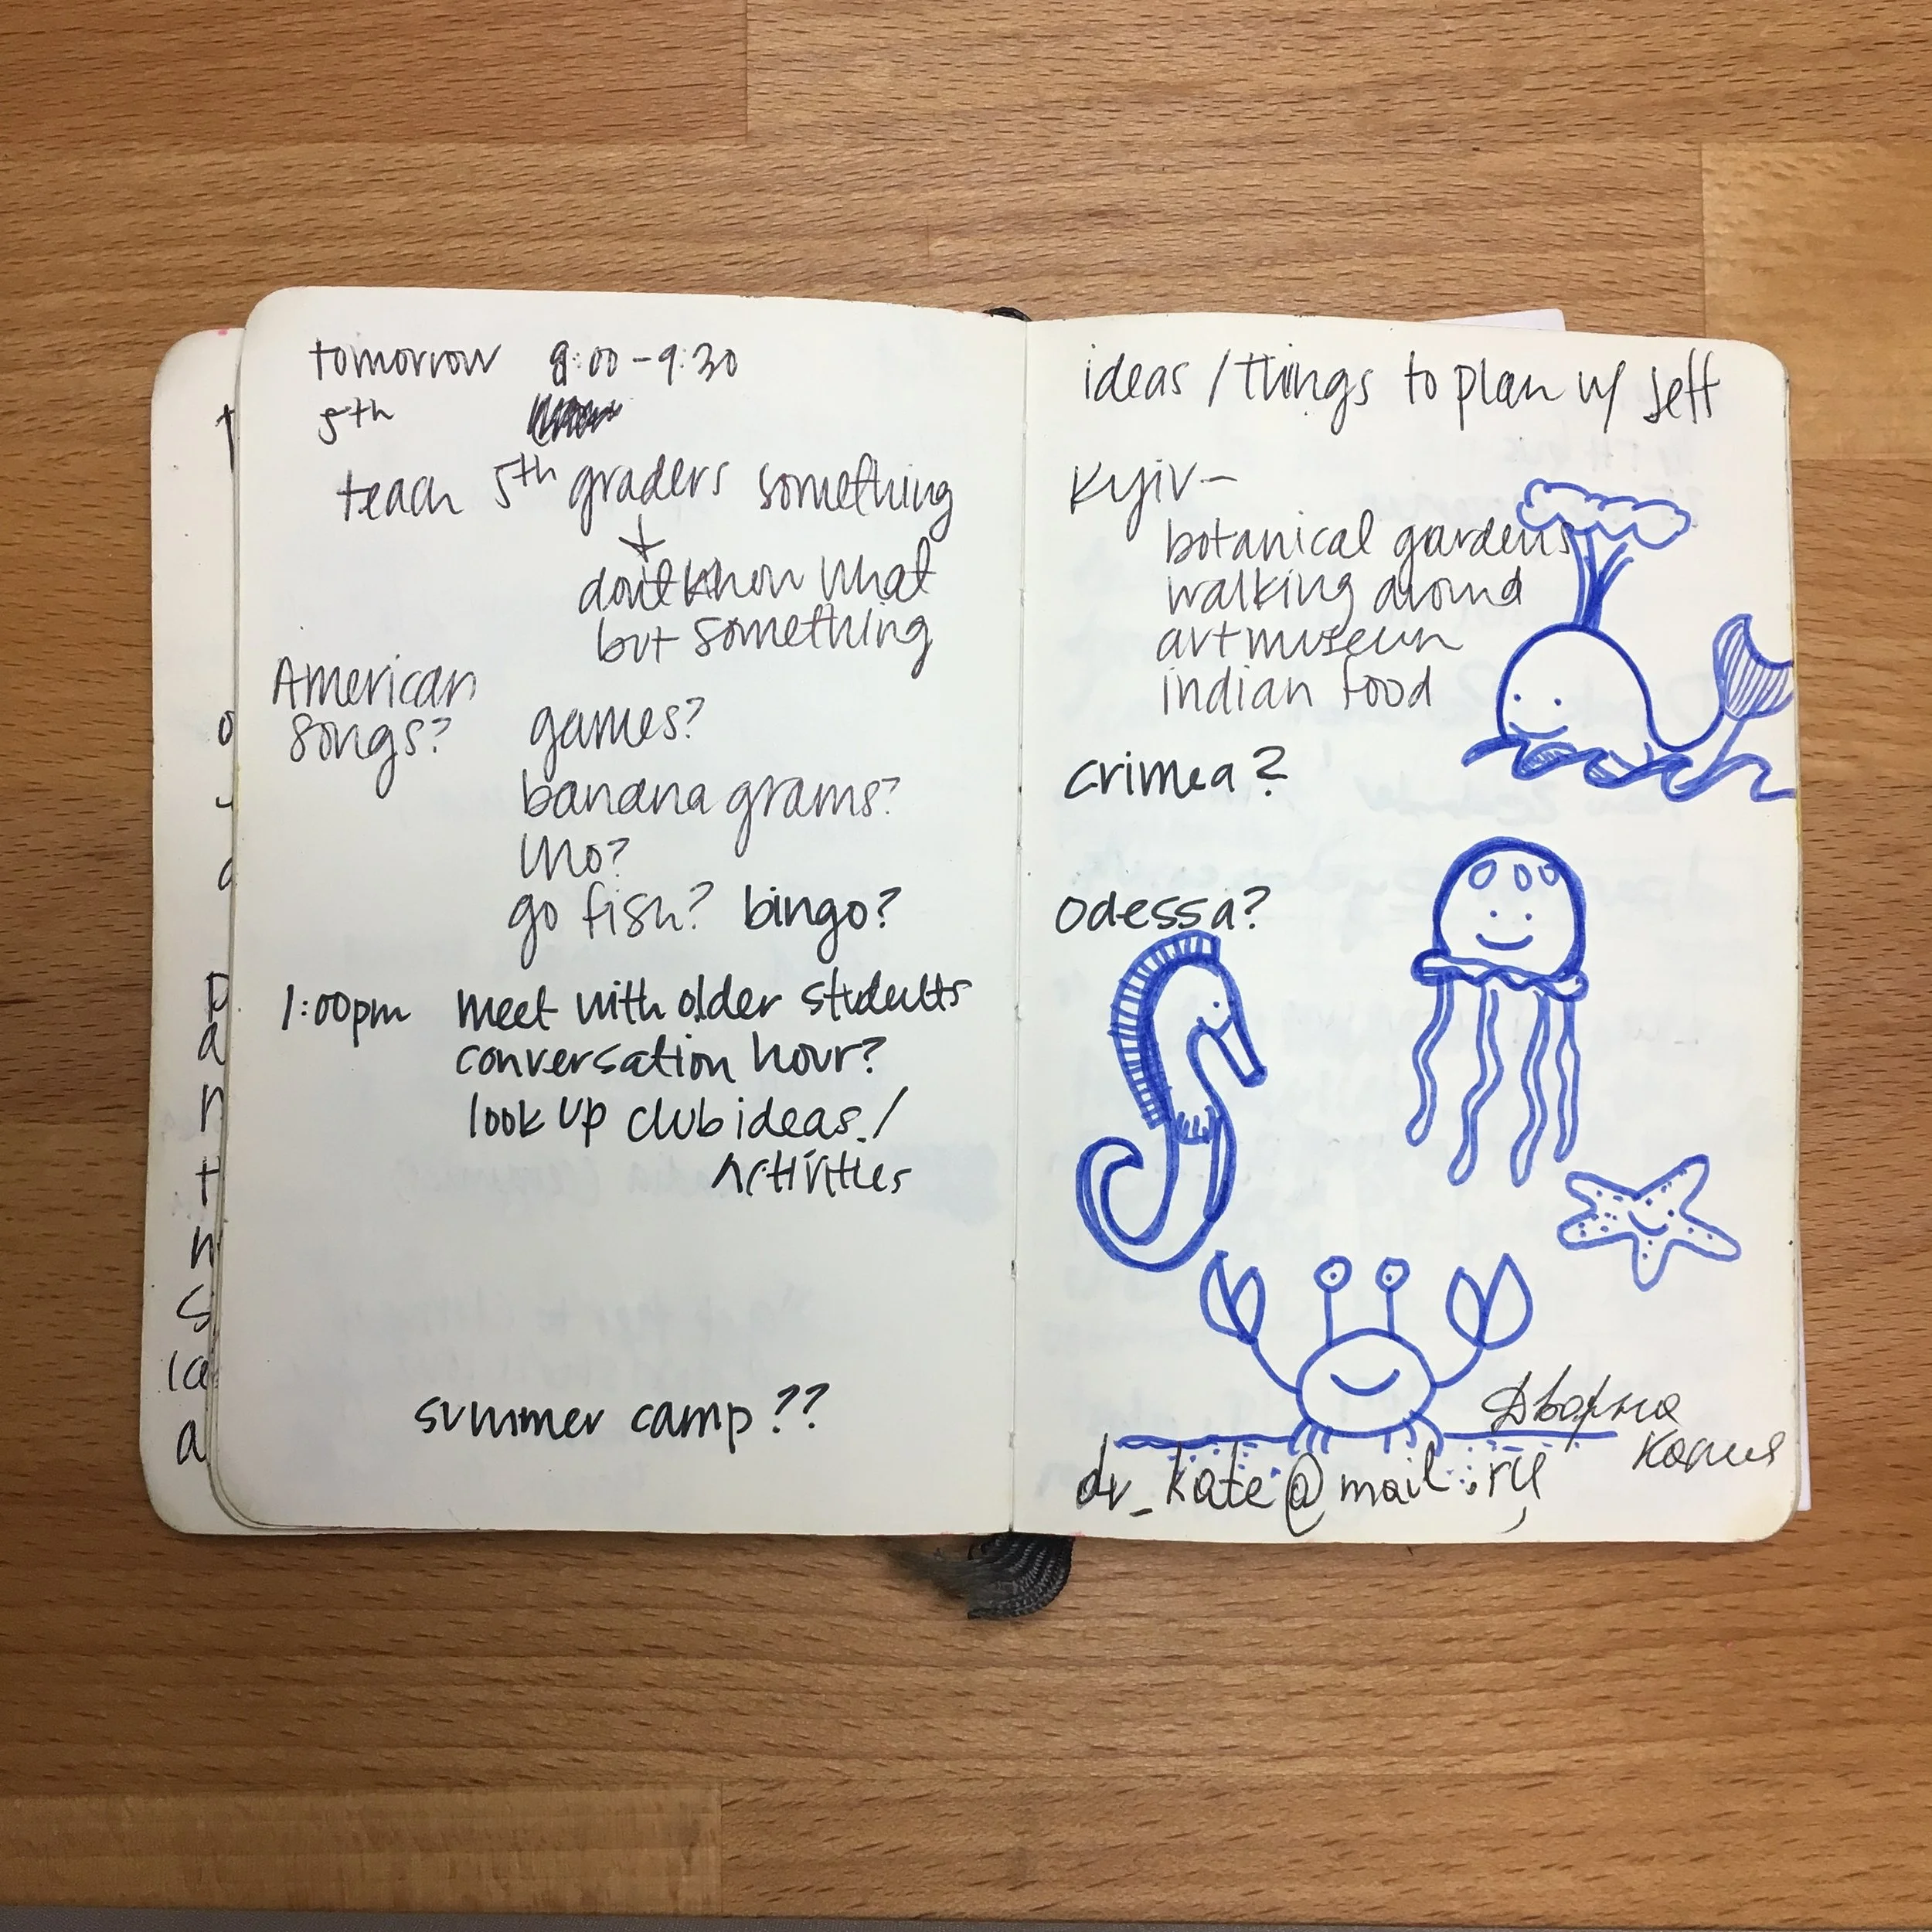 tomorrow 9:00-9:30
5th
teach 5th graders something
don't know what
but something
American
songs?
games?
bananagrams?
uno?
go fish? bingo?
1:00pm meet with older students
conversation hour?
look up club ideas/
Activities
summer camp??
ideas/things to plan w/ Jeff
Kyiv-
botanical gardens
walking around
art museum
indian food
crimea?
odessa?
dv_kate@mail.ru